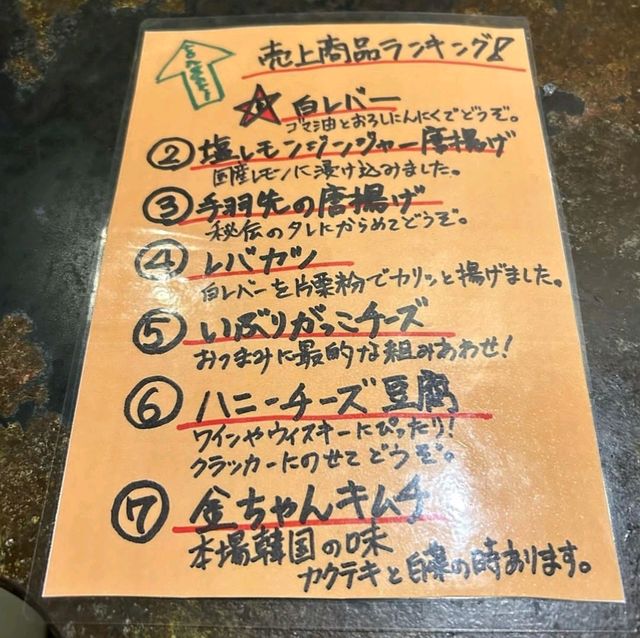 売上商品ランキング!
① 白レバー
ゴマ油とおろしにんにくでどうぞ。
② 塩レモンジンジャー唐揚げ
国産レモンに漬け込みました。
③ 手羽先の唐揚げ
秘伝のタレにからめてどうぞ。
④ レバカツ
白レバーを片栗粉でカリッと揚げました。
⑤ いぶりがっこチーズ
おつまみに最的な組みあわせ!
⑥ ハニーチーズ豆腐
ワインやウィスキーにぴったり!
クラッカーにのせてどうぞ。
⑦ 金ちゃんキムチ
本場韓国の味
カクテキと白菜の時あります。